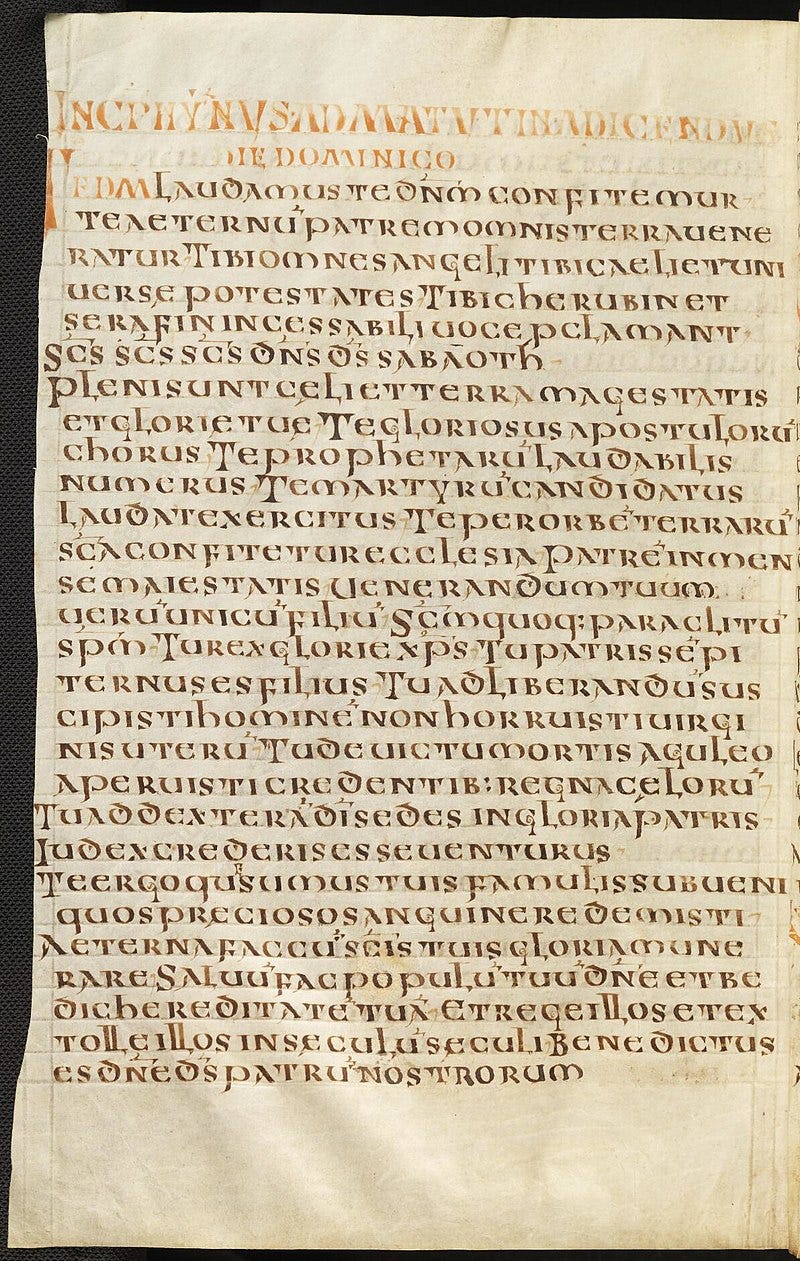 INCP HẎNVS AD MATVTINA DICENDVS
DIE DOMINICO
TEDM LAUDAMUS TE DN̄M CONFITEMUR
TE AETERNU̅ PATREM OMNIS TERRA UENE
RATUR TIBI OMNES ANGELI TIBI CAELI ET UNI
UERSE POTESTATES TIBI CHERUBIN ET
SERAFIN INCESSABILI UOCE PCLAMANT
SC̄S SC̄S SC̄S DN̄S D̄S SABAOTH
PLENI SUNT CELI ET TERRA MAGESTATIS
ET GLORIE TUE TE GLORIOSUS APOSTULORU̅
CHORUS TE PROPHETARU̅ LAUDABILIS
NUMERUS TE MARTYRU̅ CANDIDATUS
LAUDAT EXERCITUS TE PER ORBE̅ TERRARU̅
SC̄A CONFITETUR ECCLESIA PATRE̅ INMEN
SE MAIESTATIS UENERANDUM TUUM
UERU̅ UNICU̅ FILIU̅ SC̄M QUOQ: PARACLITU̅
SPM̄ TU REX GLORIE XP̄S TU PATRIS SE̅PI
TERNUS ES FILIUS TU AD LIBERANDU̅ SUS
CIPISTI HOMINE̅ NON HORRUISTI UIRGI
NIS UTERU̅ TU DEUICTU MORTIS AGULEO
APERUISTI CREDENTIB: REGNA CELORU̅
TU AD DEXTERA̅ DĪ SEDES IN GLORIA PATRIS
IUDEX CREDERIS ESSE UENTURUS
TE ERGO QUSUMUS TUIS FAMULIS SUBUENI
QUOS PRECIOSO SANGUINE REDEMISTI
AETERNA FAC CU̅ SC̄IS TUIS GLORIA MUNE
RARE SALUU̅ FAC POPULU̅ TUU̅ DN̄E ET BE
DIC HEREDITATE̅ TUA̅ ET REGE ILLOS ET EX
TOLLE ILLOS IN SECULU̅ SECULI BENEDICTUS
ES DN̄E D̄S PATRU̅ NOSTRORUM